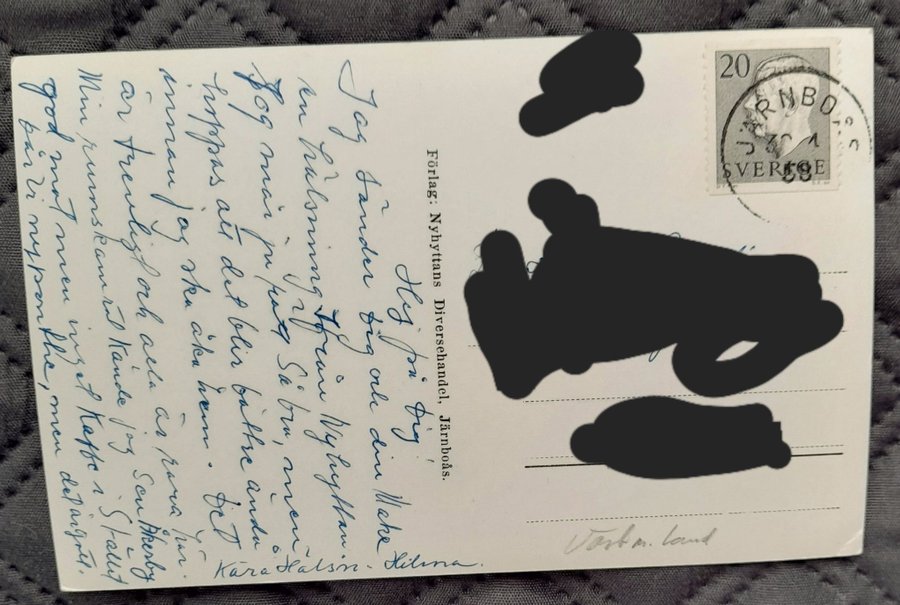 Hej på Dig
Jag sänder Dig och din Make
en hälsning från Nyhyttan.
Jag mår ju så bra, men
hoppas att det blir bättre ändå
innan jag ska åka hem. Det
är trevligt och alla är rara här.
Min rumskamrat kände jag
god mat men inget Kaffe i Stället
får vi nyponthe, men det är gott.
Kära Hälsn. Hilma.
Förlag: Nyhyttans Diversehandel, Järnboås.
20
SVERIGE
JÄRNBOÅS
58